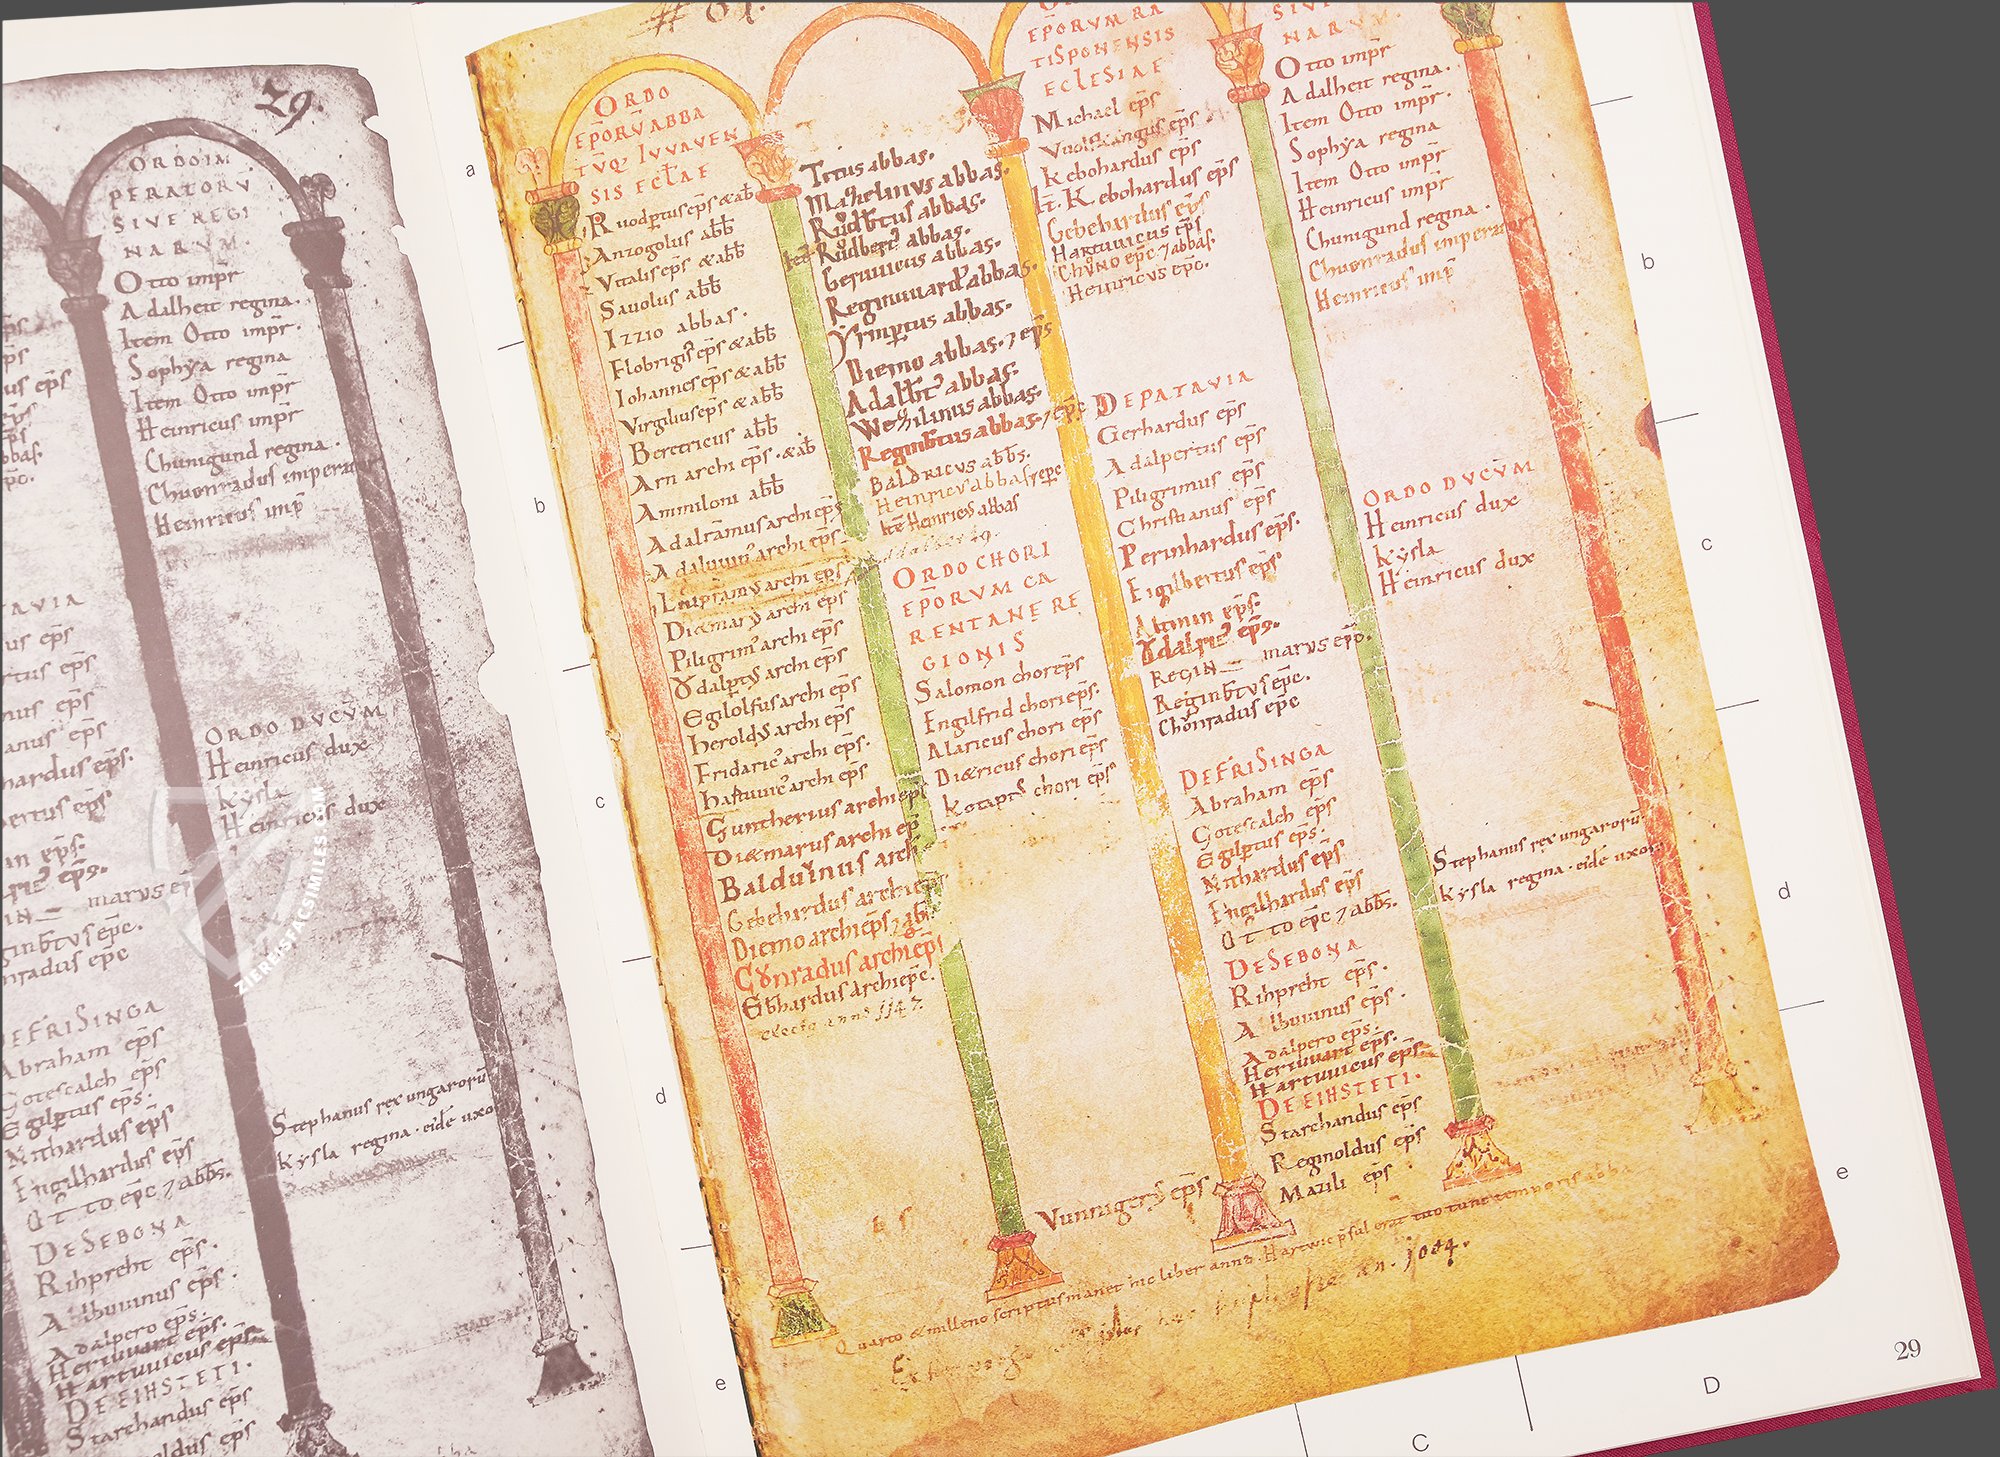 29.
ORDO IM
PERATORV̄
SIVE REGI
NARVM.
Otto imp̄r
Adalheit regina.
Item Otto imp̄r.
Sophẏa regina
Item Otto imp̄r
Heinricus imp̄r
Chunigund regina.
Chuonradus imperator
Heinricus imp̄
ORDO DVCVM
Heinricus dux
Kẏsla
Heinricus dux
Stephanus rex ungarorū
Kẏsla regina. eide uxor
DEFRISINGA
Abraham ep̄s
Gotescalch ep̄s
Egilptus ep̄s.
Nithardus ep̄s
Engilhardus ep̄s
OTTO ep̄c 7 abb̄s.
DESEBONA
Rihpreht ep̄s.
Albuuinus ep̄s.
Adalpero ep̄s.
Heriuuart ep̄s.
Hartuuicus ep̄s.
DEEIHSTETI.
Starchandus ep̄s
ZIEREISFACSIMILES.COM
a
b
c
d
e
ORDO
EP̄ORV̄ ABBA
TVQ; IVVAVEN
SIS ECL̄AE
Ruodptus ep̄s & ab̄
Anzogolus abb̄
Vitalis ep̄s & abb̄
Sauolus abb̄
Izzio abbas.
Flobrigis ep̄s & abb̄
Iohannes ep̄s & abb̄
Virgilius ep̄s & abb̄
Bertricus abb̄
Arn archi ep̄s. & ab̄
Ammiloni abb̄
Adalrāmus archi ep̄s
Adaluuin' archi ep̄s.
Liupram' archi ep̄s
Di&mar' archi ep̄s
Piligrim' archi ep̄s
Ödalpt' archi ep̄s
Egilolfus archi ep̄s
Herold' archi ep̄s
Fridaric' archi ep̄s.
Hartuuic' archi ep̄s
Guntherius archi ep̄s
Di&marus archi ep̄
Balduinus arch
Gebehardus archi ep̄s
Diemo archi ep̄s 7 ab̄
Cōnradus archi ep̄s
Eb̄hardus archiep̄c.
electo anno 1147.
Titus abbas.
Mazhelinus abbas.
Rŏdb̄tus abbas.
Itē Rŏdbert' abbas.
Geruuicus abbas.
Reginuuard' abbas.
Ysinptus abbas.
Diemo abbas. 7 ep̄s
Adalb̄t' abbas.
Wezilinus abbas.
Reginb̄tus abbas. 7 ep̄c
BALDRICVS abb̄s.
Heinricus abbas 7 epc
Itē Heinricus abbas
ORDO CHORI
EP̄ORVM CA
RENTANE RE
GIONIS
Salomon chorep̄s
Engilfrid chori ep̄s.
Alaricus chori ep̄s
Di&ricus chori ep̄s
Kotapt' chori ep̄s
Vunniger' ep̄s
EP̄ORVM RA
TISPONENSIS
ECLESIAE
Michael ep̄s
Vuolfkangus ep̄s
Kebohardus ep̄s
It. Kebohardus ep̄s
Gebehardus ep̄s
Hartuuicus ep̄s
Chŭno ep̄c 7 abbas.
Heinricus ep̄c.
DEPATAVIA
Gerhardus ep̄s
Adalpertus ep̄s
Piligrimus ep̄s
Christianus ep̄s
Perinhardus ep̄s.
Eigilbertus ep̄s
Altmin ep̄s.
Ŏdalric' ep̄s.
REGIN marus ep̄c.
Reginb̄tus ep̄c.
Chŏnradus ep̄c
DEFRISINGA
Abraham ep̄s
Gotescalch ep̄s
Egilptus ep̄s.
Nithardus ep̄s
Engilhardus ep̄s
OTTO ep̄c 7 abb̄s.
DESEBONA
Rihpreht ep̄s.
Albuuinus ep̄s.
Adalpero ep̄s.
Heriuuart ep̄s.
Hartuuicus ep̄s.
DEEIHSTETI.
Starchandus ep̄s
Reginoldus ep̄s
Mazili ep̄s
NARVM.
Otto imp̄r
Adalheit regina.
Item Otto imp̄r.
Sophẏa regina
Item Otto imp̄r
Heinricus imp̄r
Chunigund regina.
Chuonradus imperator
Heinricus imp̄
ORDO DVCVM
Heinricus dux
Kẏsla
Heinricus dux
Stephanus rex ungarorū
Kẏsla regina. eide uxor
Quarto & milleno scriptus manet hic liber anno. Hartwic p̄sul erat tuo tunc temporis abba
an. 1004.
b
c
d
e
C
D
29